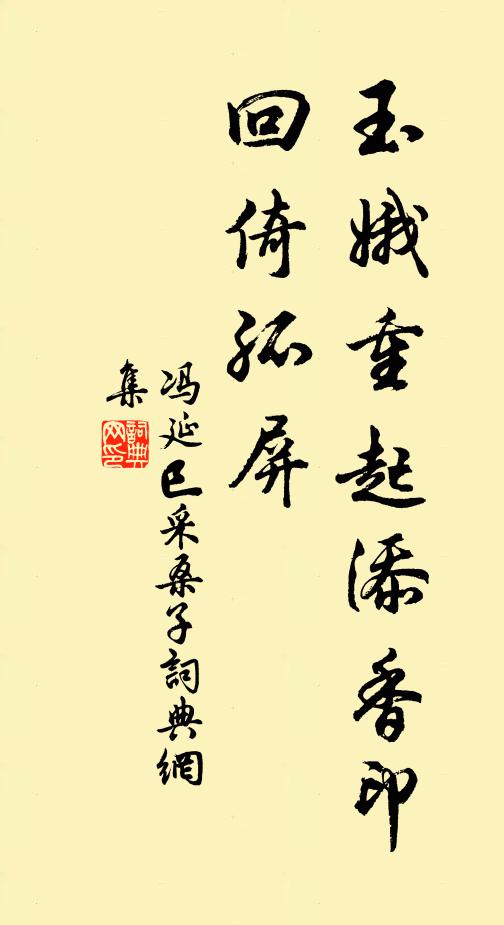 玉娥重起添香印
回倚孤屏
冯延巳采桑子詞典網
集
詞典网印